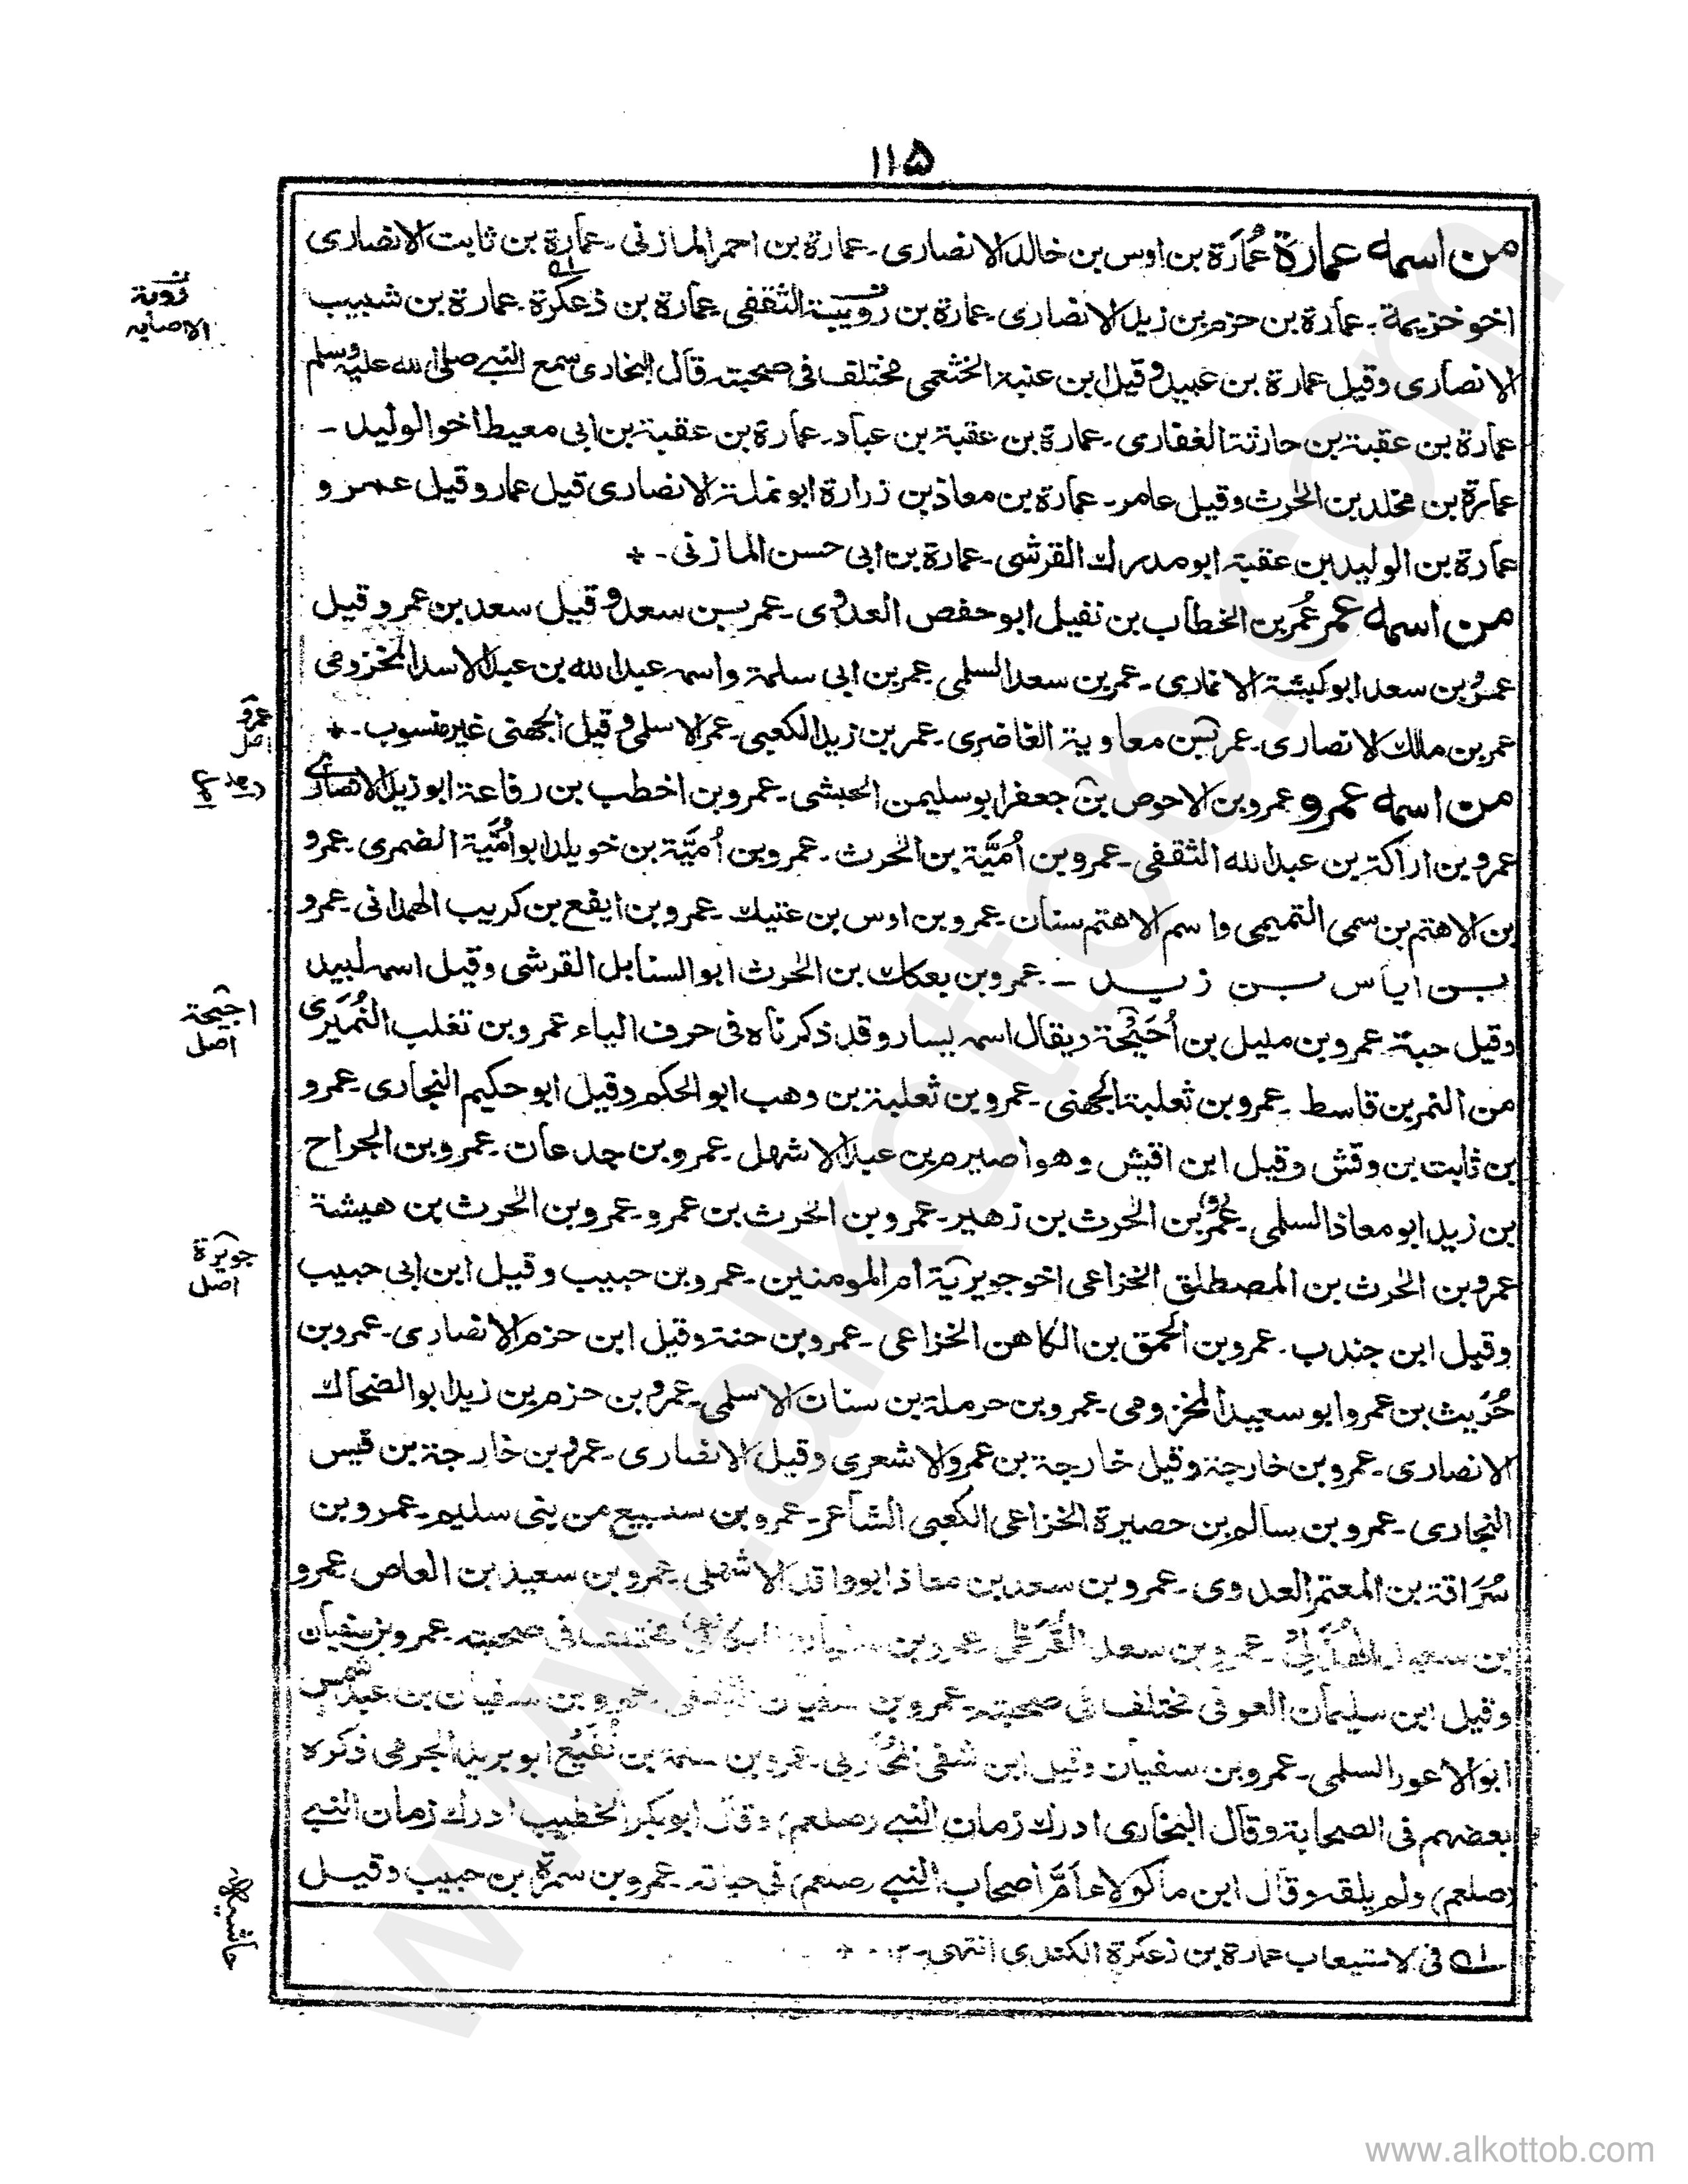 ١١٥
من اسمه عمارة عُمَارَة بن اوس بن خالد الانصارى ـ عمارة بن احمر المازنى ـ عمارة بن ثابت الانصارى
اخو خزيمة ـ عمارة بن حزم بن زيد الانصارى ـ عمارة بن رويبة الثقفى ـ عمارة بن زعكرة ـ عمارة بن شبيب
الانصارى وقيل عمارة بن عبيد وقيل ابن عتبة الخثعمى مختلف فى صحبته قال البخارى سمع النبى صلى الله عليه وسلم
عمارة بن عقبة بن حارثة الغفارى ـ عمارة بن عقبة بن عباد ـ عمارة بن عقبة بن ابى معيط اخو الوليد ـ
عمارة بن مخلد بن الحرث وقيل عامر ـ عمارة بن معاذ بن زرارة ابو نملة الانصارى قيل عمار وقيل عمرو
عمارة بن الوليد بن عقبة ابو مدرك القرشى ـ عمارة بن ابى حسن المازنى ـ +
من اسمه عمر عُمَر بن الخطاب بن نفيل ابو حفص العدوى ـ عمر بن سعد وقيل سعد بن عمر وقيل
عمرو بن سعد ابو كبشة الانمارى ـ عمر بن سعد السلمى عمر بن ابى سلمة واسمه عبد الله بن عبد الاسد المخزومى
عمر بن مالك الانصارى ـ عمر بن معاوية الغاضرى ـ عمر بن زيد الكعبى ـ عمر الاسلمى وقيل الجهنى غير منسوب ـ +
من اسمه عمرو عمرو بن الاحوص بن جعفر ابو سليمن الحبشى ـ عمرو بن اخطب بن رفاعة ابو زيد الانصارى
عمرو بن اراكة بن عبد الله الثقفى ـ عمرو بن اُمَيَّة بن الحرث ـ عمرو بن اُمَيَّة بن خويلد ابو اُمَيَّة الضمرى ـ عمرو
بن الاهتم بن سمى التميمى واسم الاهتم سنان ـ عمرو بن اوس بن عتيك ـ عمرو بن ايفع بن كريب الهمدانى ـ عمرو
بن اياس بن زيد ـ عمرو بن بعكك بن الحرث ابو السنابل القرشى وقيل اسمه لبيد
وقيل حبة ـ عمرو بن مليل بن اُحَيْحَة ويقال اسمه يسار وقد ذكرناه فى حرف الياء عمرو بن تغلب النُمَيَرى
من النمر بن قاسط ـ عمرو بن ثعلبة الجهنى ـ عمرو بن ثعلبة بن وهب ابو الحكم وقيل ابو حكيم النجارى ـ عمرو
بن ثابت بن وقش وقيل ابن اقيش وهو اصيرم بن عبد الاشهل ـ عمرو بن جدعان ـ عمرو بن الجراح
بن زيد ابو معاذ السلمى ـ عمرو بن الحرث بن زهير ـ عمرو بن الحرث بن عمرو ـ عمرو بن الحرث بن هيشة
عمرو بن الحرث بن المصطلق الخزاعى اخو جويرية ام المومنين ـ عمرو بن حبيب وقيل ابن ابى حبيب
وقيل ابن جندب ـ عمرو بن الحمق بن الكاهن الخزاعى ـ عمرو بن حنة وقيل ابن حزم الانصارى ـ عمرو بن
حُرَيث بن عمرو ابو سعيد المخزومى ـ عمرو بن حرملة بن سنان الاسلمى ـ عمرو بن حزم بن زيد ابو الضحاك
الانصارى ـ عمرو بن خارجة وقيل خارجة بن عمرو الاشعرى وقيل الانصارى ـ عمرو بن خارجة بن قيس
النجارى ـ عمرو بن سالم بن حصيرة الخزاعى الكعبى الشاعر ـ عمرو بن سبيع من بنى سليم ـ عمرو بن
سُرَاقة بن المعتمر العدوى ـ عمرو بن سعد بن معاذ ابو واقد الاشهلى ـ عمرو بن سعيد بن العاص عمرو
بن سعيد الهذلى ـ عمرو بن سعد القرظى عمرو بن مختلف فى صحبته ـ عمرو بن سفيان
وقيل ابن سليمان العوفى مختلف فى صحبته ـ عمرو بن سفيان الثقفى ـ عمرو بن سفيان بن عبد شمس
ابو الاعور السلمى ـ عمرو بن سفيان وقيل ابن شفى المحاربى ـ عمرو بن سلمة بن نُفَيْع ابو بريد الجرمى ذكره
بعضهم فى الصحابة وقال البخارى ادرك زمان النبى (صلعم) وقال ابو بكر الخطيب ادرك زمان النبى
(صلعم) ولم يلقه وقال ابن ماكولا عَامَّ اصحاب النبى (صلعم) فى حياته ـ عمرو بن سمرة بن حبيب وقيل
له فى الاستيعاب عمارة بن زعكرة الكندى انتهى ـ ١٢ ـ +
رُويبة
الاصابه
عمرو
اصل
اجيحة
اصل
جويرة
اصل
حاشيه
www.alkottob.com
www.alkottob.com